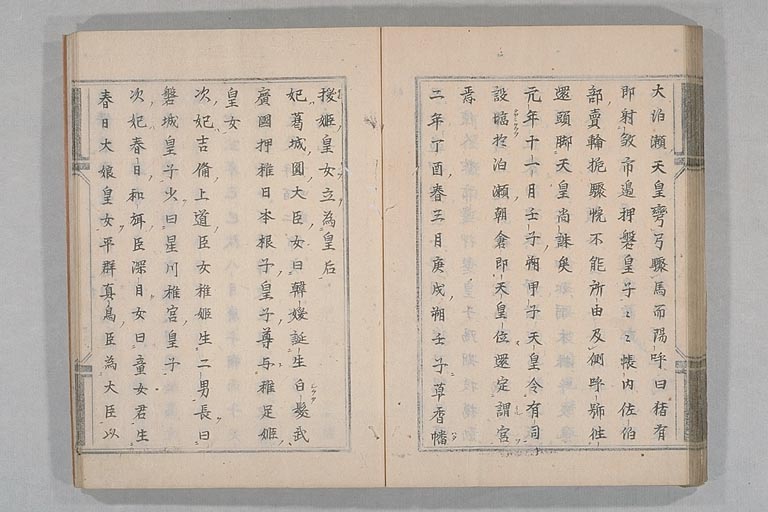 大泊瀬天皇彎弓驟馬而陽呼曰猪有
即射敦市邉押磐皇子々々帳内佐伯
部賣輪抱驟愰不能所由及側呼号往
還頭脚天皇尚誅矣
元年十一月壬子朔甲子天皇令有司
設壇於泊瀬朝倉即天皇位還定謂宮
焉
二年丁酉春三月庚戌朔壬子草香幡
梭姫皇女立為皇后
妃葛城圓大臣女曰韓媛誕生白髮武
廣國押稚日本根子皇子尊与稚足姫
皇女
次妃吉備上道臣女稚姫生二男長曰
磐城皇子少曰星川稚宮皇子
次妃春日和珥臣深目女曰童女君生
春日大娘皇女平群真鳥臣為大臣以